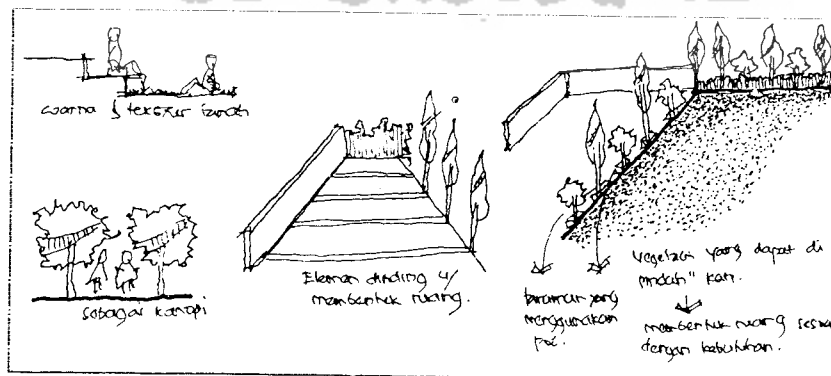 warna & tekstur
sebagai kanopi
Elemen dinding u/
membentuk ruang.
tanaman yang
menggunakan
pot.
Vegetasi yang dapat di
pindah" kan.
membentuk ruang sesua
dengan kebutuhan.